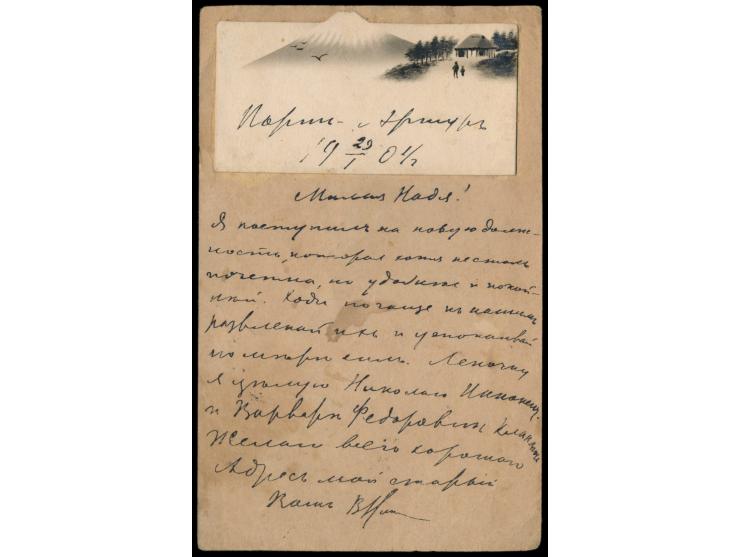 Портъ-Артуръ
19 29/I 04 г
Милая Надя!
Я поступилъ на новую долж-
ность, которая хотя не столь
почетна, но удобнѣе и покой-
нѣй. Ходи почаще къ нашимъ
развлекай ихъ и успокаивай
по мѣрѣ силъ. Леночку
я цѣлую Николаю
и Варварѣ Федоровнѣ кланяюсь
Желаю всего хорошаго
Адресъ мой старый
Вашъ